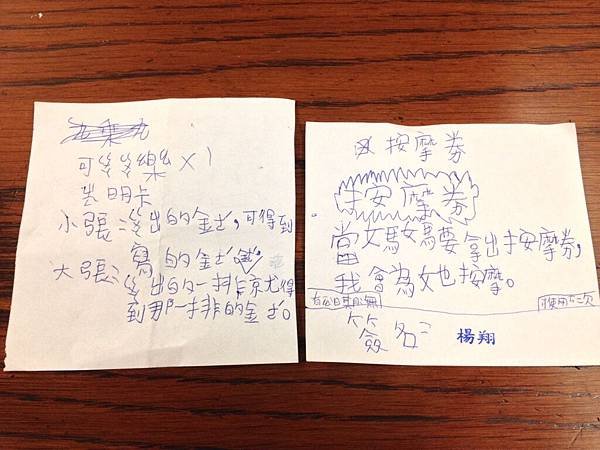 樂 x 1
明卡
小張:出的金,可得到
大張:寫的金
出的一排就得
到那一排的金。
按摩券
按摩券
當媽媽要拿出按摩券,
我會為她按摩。
有效日期:無
可使用 次
簽名: 楊翔